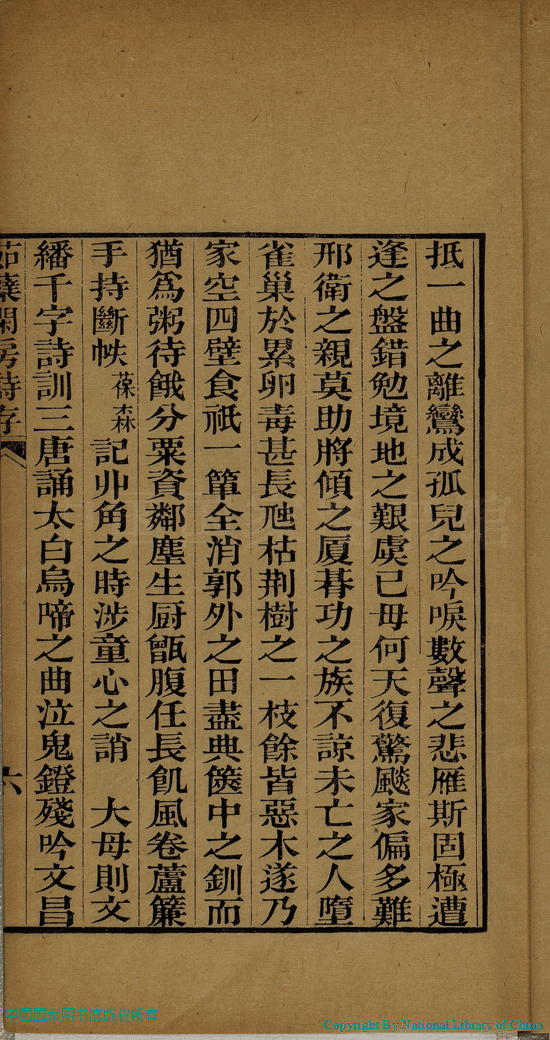 抵一曲之離鸞成孤兒之吟唳數聲之悲雁斯固極遭
逢之盤錯勉境地之艱虞已毋何天復驚飈家偏多難
邢衛之親莫助將傾之厦朞功之族不諒未亡之人墮
雀巢於累卵毒甚長虺枯荆樹之一枝餘皆惡木遂乃
家空四壁食祇一簞全消郭外之田盡典篋中之釧而
猶爲粥待餓分粟資鄰塵生厨甑腹任長飢風卷蘆簾
手持斷帙葆森記丱角之時涉童心之誚 大母則文
繙千字詩訓三唐誦太白烏啼之曲泣鬼鐙殘吟文昌
茹蘗閑房詩存
六
中国国家图书馆版权所有
Copyright By National Library of China